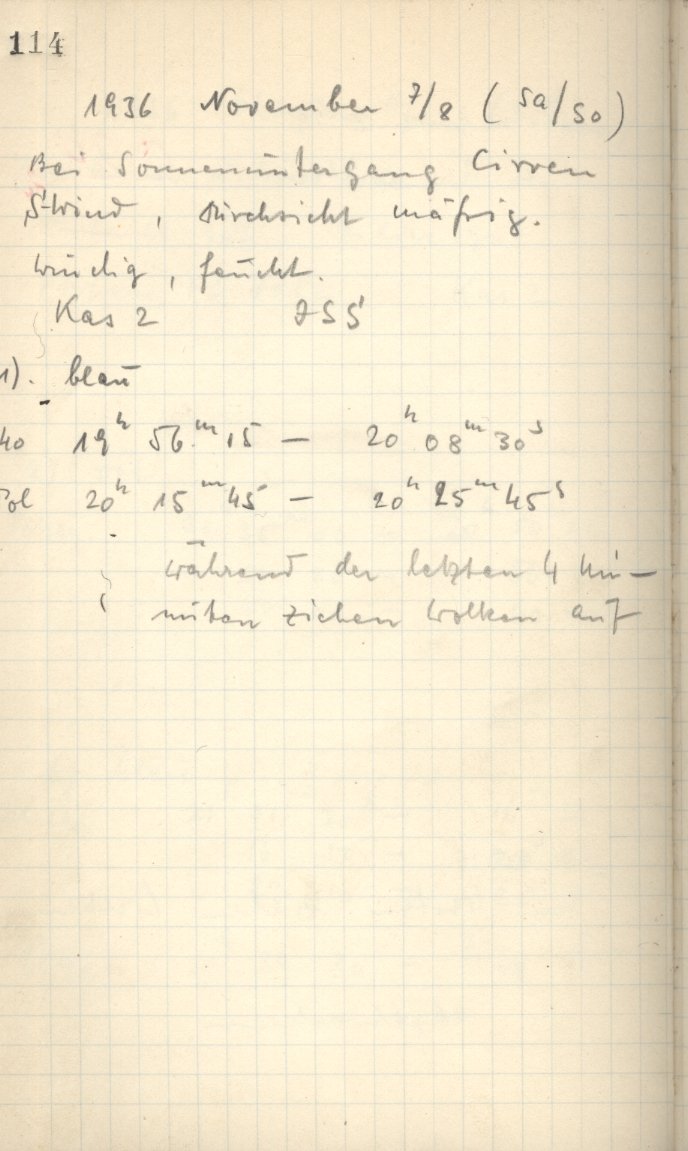 114
1936 November 7/8 (Sa/So)
Bei Sonnenuntergang Cirren
S-Wind, Durchsicht mäßig.
windig, feucht.
Kas 2 JSS
1). blau
40 19h 56m 15 — 20h 08m 30s
Pol 20h 15m 45 — 20h 25m 45s
während der letzten 4 Mi-
nuten ziehen Wolken auf